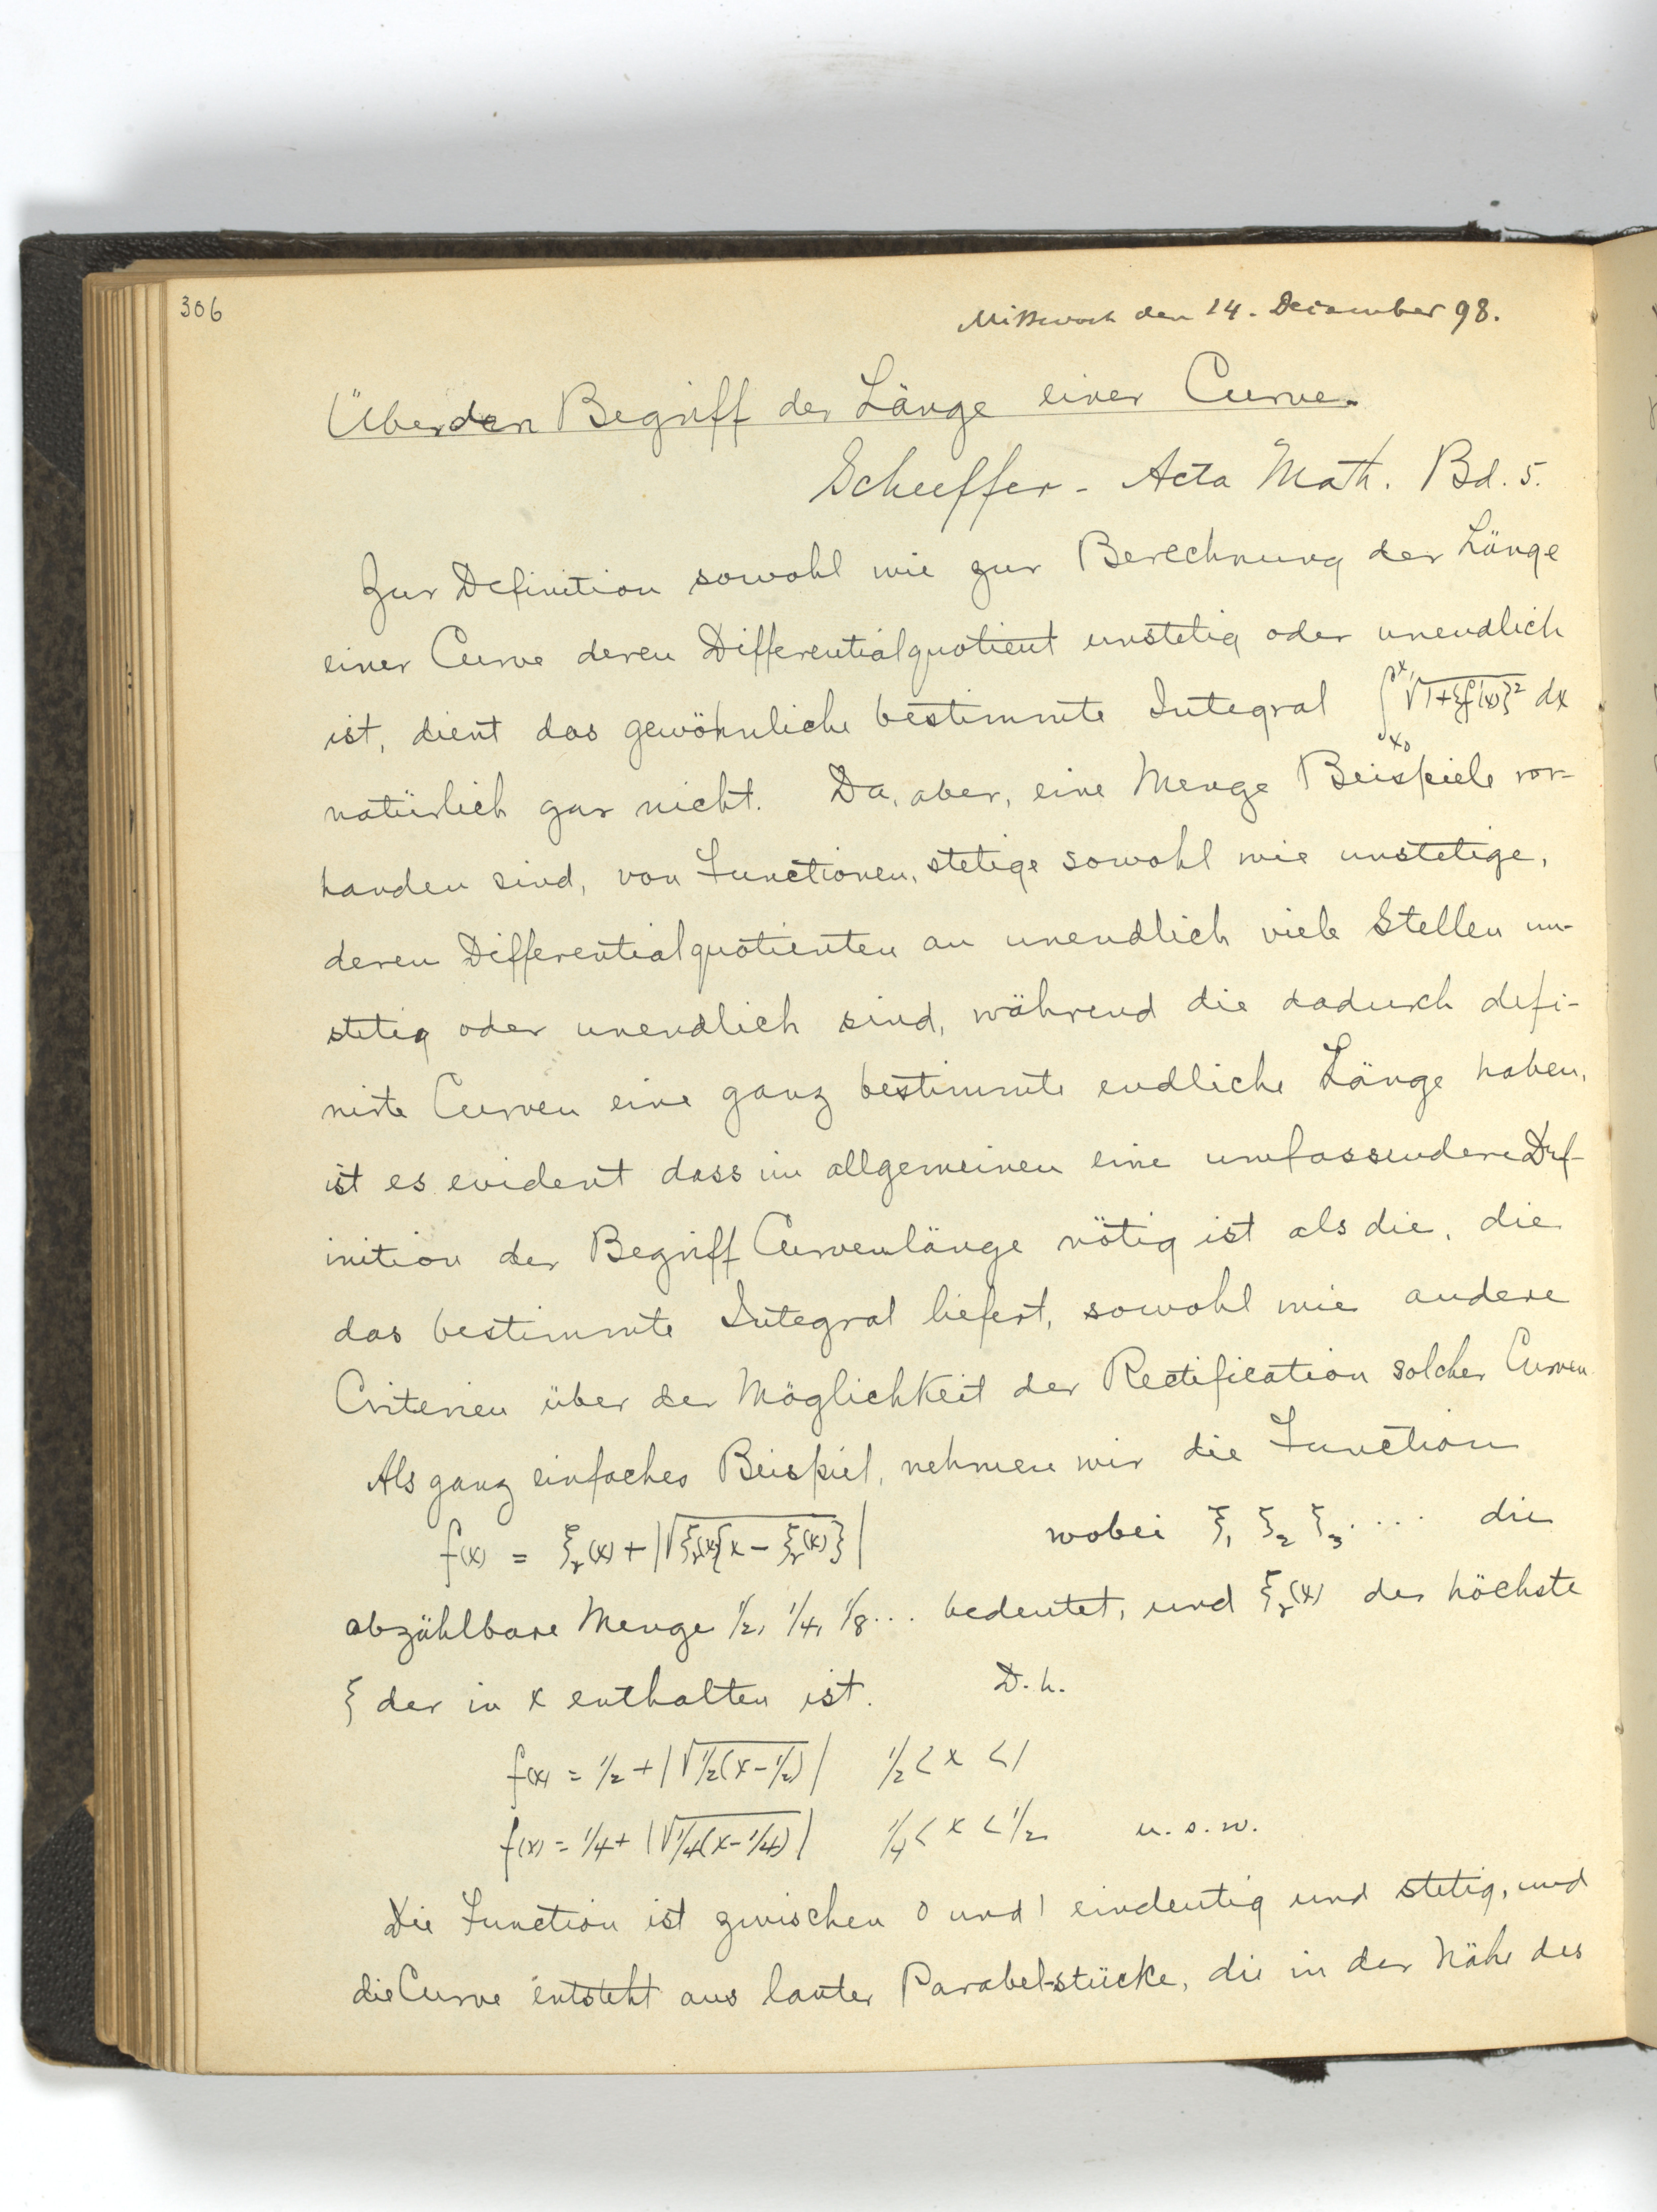 306
Mittwoch den 14. December 98.
Über den Begriff der Länge einer Curve.
Scheeffer - Acta Math. Bd. 5.
Zur Definition sowohl wie zur Berechnung der Länge
einer Curve deren Differentialquotient unstetig oder unendlich
ist, dient das gewöhnliche bestimmte Integral ∫_{x₀}^{x₁} √1+{f'(x)}² dx
natürlich gar nicht. Da, aber, eine Menge Beispiele vor-
handen sind, von Functionen, stetige sowohl wie unstetige,
deren Differentialquotienten an unendlich viele Stellen un-
stetig oder unendlich sind, während die dadurch defi-
nirte Curven eine ganz bestimmte endliche Länge haben,
ist es evident dass im allgemeinen eine umfassendere Def-
inition der Begriff Curvenlänge nötig ist als die, die
das bestimmte Integral liefert, sowohl wie andere
Criterien über der Möglichkeit der Rectification solcher Curven
Als ganz einfaches Beispiel, nehmen wir die Function
f(x) = ξᵣ(x) + |√ξᵣ(x){x - ξᵣ(x)}| wobei ξ₁ ξ₂ ξ₃ .... die
abzählbare Menge 1/2, 1/4, 1/8 ... bedeutet, und ξᵣ(x) der höchste
ξ der in x enthalten ist. D. h.
f(x) = 1/2 + |√1/2(x-1/2)| 1/2 < x < 1
f(x) = 1/4 + |√1/4(x-1/4)| 1/4 < x < 1/2 u. s. w.
Die Function ist zwischen 0 und 1 eindeutig und stetig, und
die Curve entsteht aus lauter Parabel-stücke, die in der Nähe des